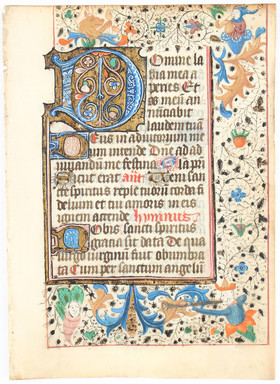 Domine la
bia mea a
peries Et
os meū an
nūciabit
laudem tuā
Deus in adiutorium me
um intende Dne ad ad
iuuandū me festina Gla pri
Sicut erat ant Veni san
cte spiritus reple tuorū corda fi
deliū et tui amoris in eis
ignem accende hymnus
Nobis sancti spiritus
gracia sit data De qua
uirgo uirginū fuit obumbra
ta Cum per sanctum angelū